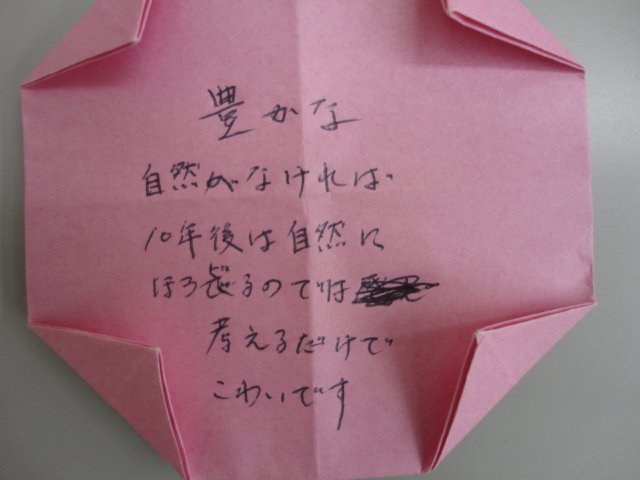 豊かな
自然がなければ
10年後は自然に
ほろびるのでは
考えるだけで
こわいです